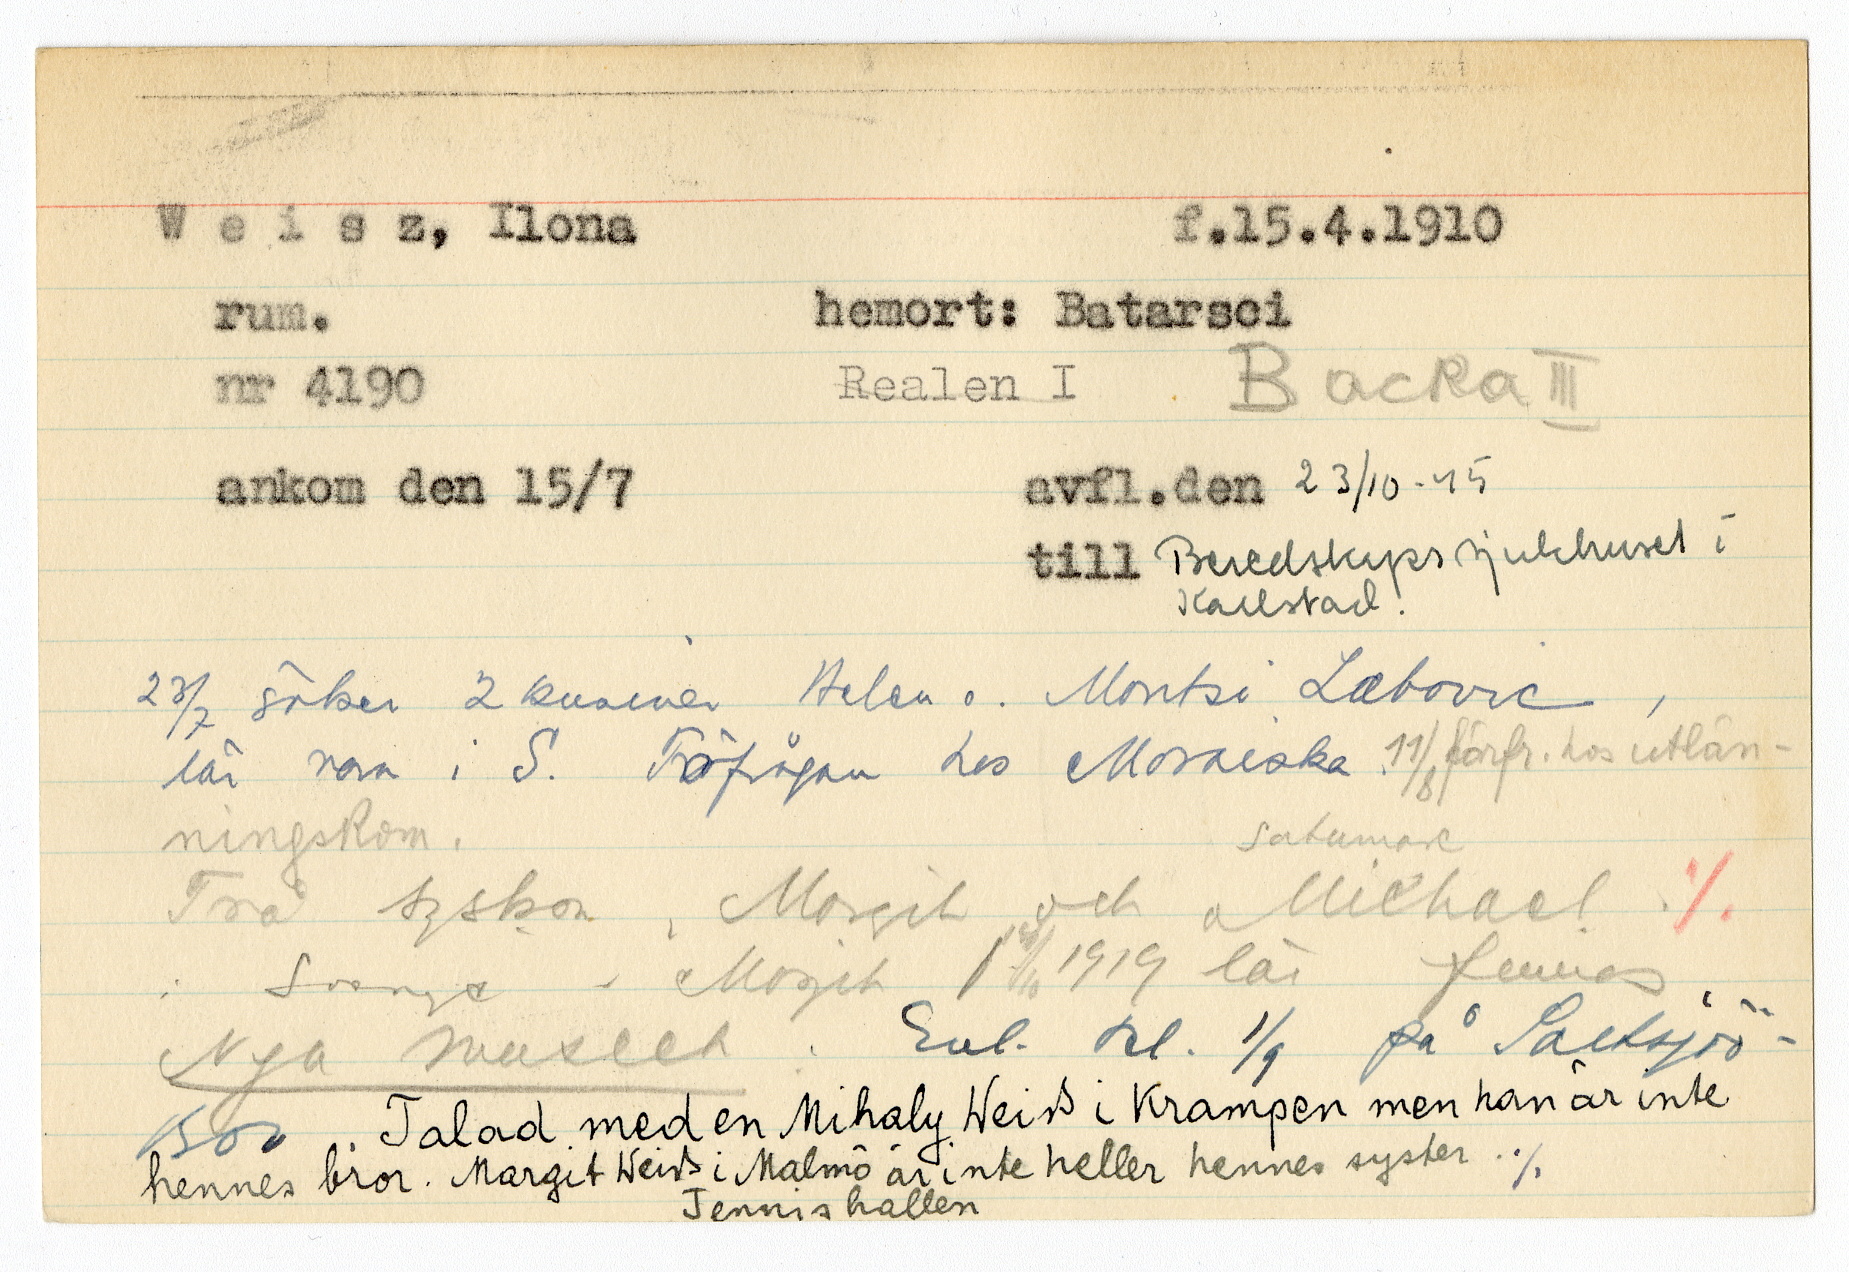 W e i s z, Ilona f.15.4.1910
rum. hemort: Batarsci
nr 4190 Realen I Backa III
ankom den 15/7 avfl.den 23/10-45
till Beredskapssjukhuset i
Karlstad.
23/7 söker 2 kusiner Helen o. Montsi Lebovic,
lär vara i S. Förfrågan hos Mosaiska. 11/8 förfr. hos utlän-
ningskom.
Satumare
Två syskon, Margit och Michael ./.
i Sverige - Margit 1919 lär finnas
Nya museet. Enl. tel. 1/9 på Saltsjö-
boo. Talad med en Mihaly Weiss i Krampen men han är inte
hennes bror. Margit Weiss i Malmö är inte heller hennes syster ./.
Tennishallen